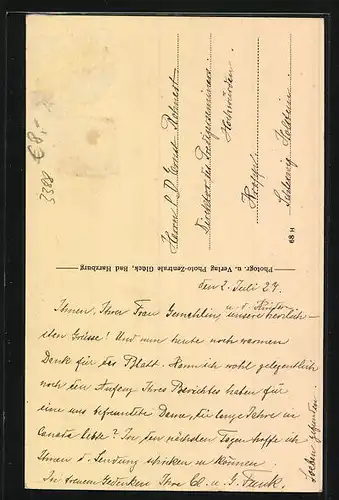 €8,-
3388
Herrn P. D. Ernst Rohnert
Direktor des Predigerseminars
Hochwürden
Kropp
Schleswig Holstein.
68 H
Photogr. u. Verlag Photo-Zentrale Glück, Bad Harzburg
den 2. Juli 27.
Ihnen, Ihrer Frau Gemahlin u. d. Kindern unsere herzlich-
sten Grüsse! Und nun heute noch warmen
Dank für das Blatt. Kann ich wohl gelegentlich
noch den Anfang Ihres Berichtes haben für
eine uns befreundete Dame, die lange Jahre in
Canada lebte? In den nächsten Tagen hoffe ich
Ihnen d. Sendung schicken zu können.
In treuem Gedenken Ihre Cl. u. G. Funk.
Soeben gefunden.